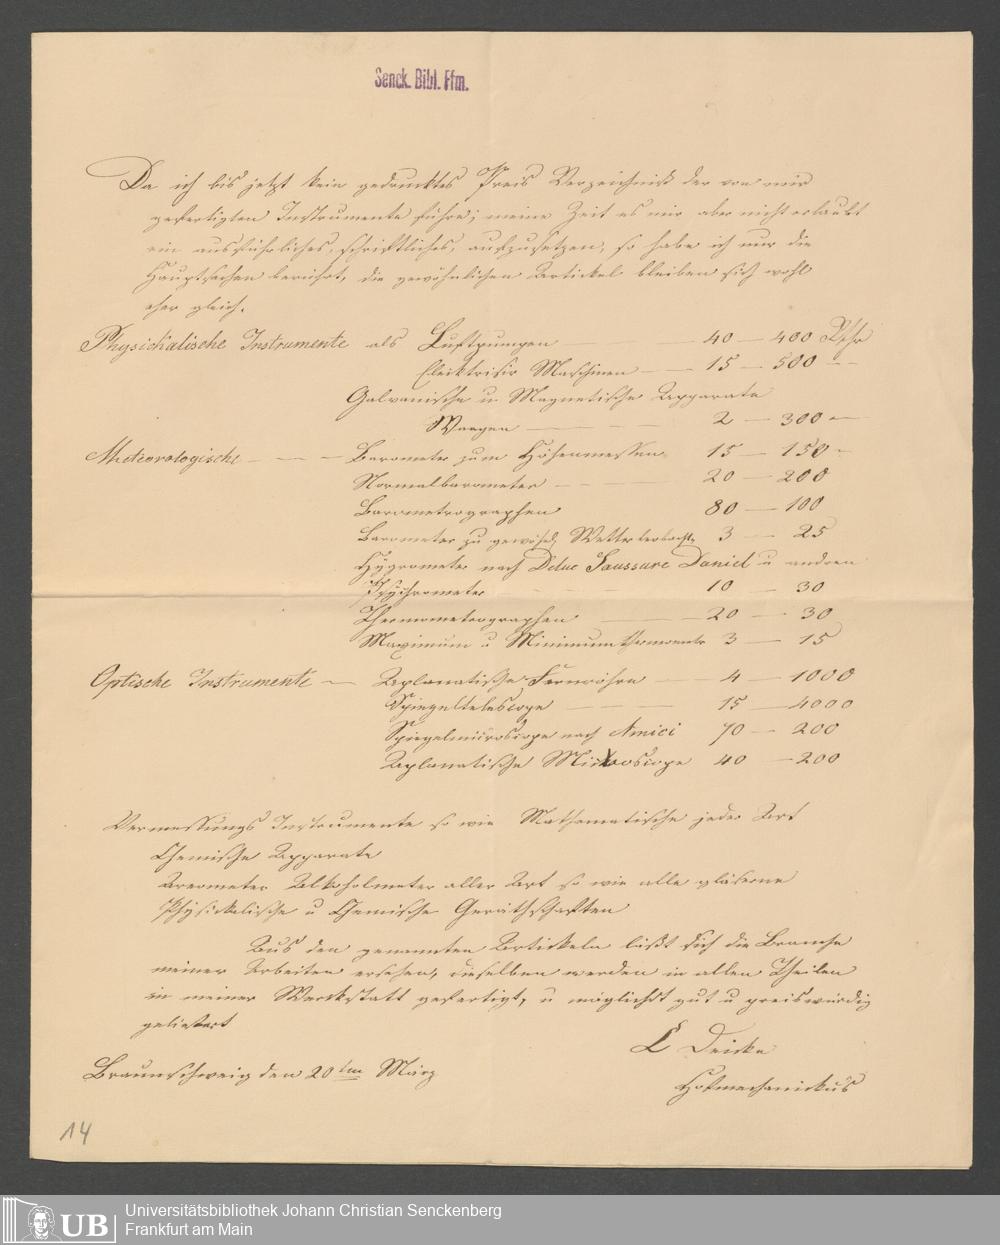 Senck. Bibl. Ffm.
Da ich bis jetzt kein gedrucktes Preis Verzeichniß der von mir
gefertigten Instrumente führe; meine Zeit es mir aber nicht erlaubt
ein ausführliches, schriftliches, aufzusetzen, so habe ich nur die
Hauptsachen berührt, die gewöhnlichen Artickel bleiben sich wohl
eher gleich.
Physickalische Instrumente als Luftpumpen — 40 — 400 Rthr
Elecktrisir Maschinen — 15 — 500 —
Galvanische u Magnetische Apparate
Waagen — 2 — 300 —
Meteorologische — Barometer zum Höhenmessen 15 — 150 —
Normalbarometer — 20 — 200
Barometrographen 80 — 100
Barometer zu gewöhl Wetterbeobacht 3 — 25
Hygrometer nach Deluc Saussure Daniel u andren
Psychrometer 10 — 30
Thermometrographen — 20 — 30
Maximum u Minimumthermometer 3 — 15
Optische Instrumente — Aplanatische Fernröhre — 4 — 1000
Spiegeltelescope — 15 — 4000
Spiegelmicroscope nach Amici 70 — 200
Aplanatische Microscope 40 — 200
Vermessungs Instrumente so wie Mathematische jeder Art
Chemische Apparate
Areometer Alkoholmeter aller Art so wie alle gläserne
Physickalische u Chemische Geräthschaften
Aus den genannten Artickeln läßt sich die Branche
meiner Arbeiten ersehen, dieselben werden in allen Theilen
in meiner Werckstatt gefertigt, u möglichst gut u preiswürdig
geliefert
L Deicke
Braunschweig den 20ten März
Hofmechanickus
14
UB
Universitätsbibliothek Johann Christian Senckenberg
Frankfurt am Main